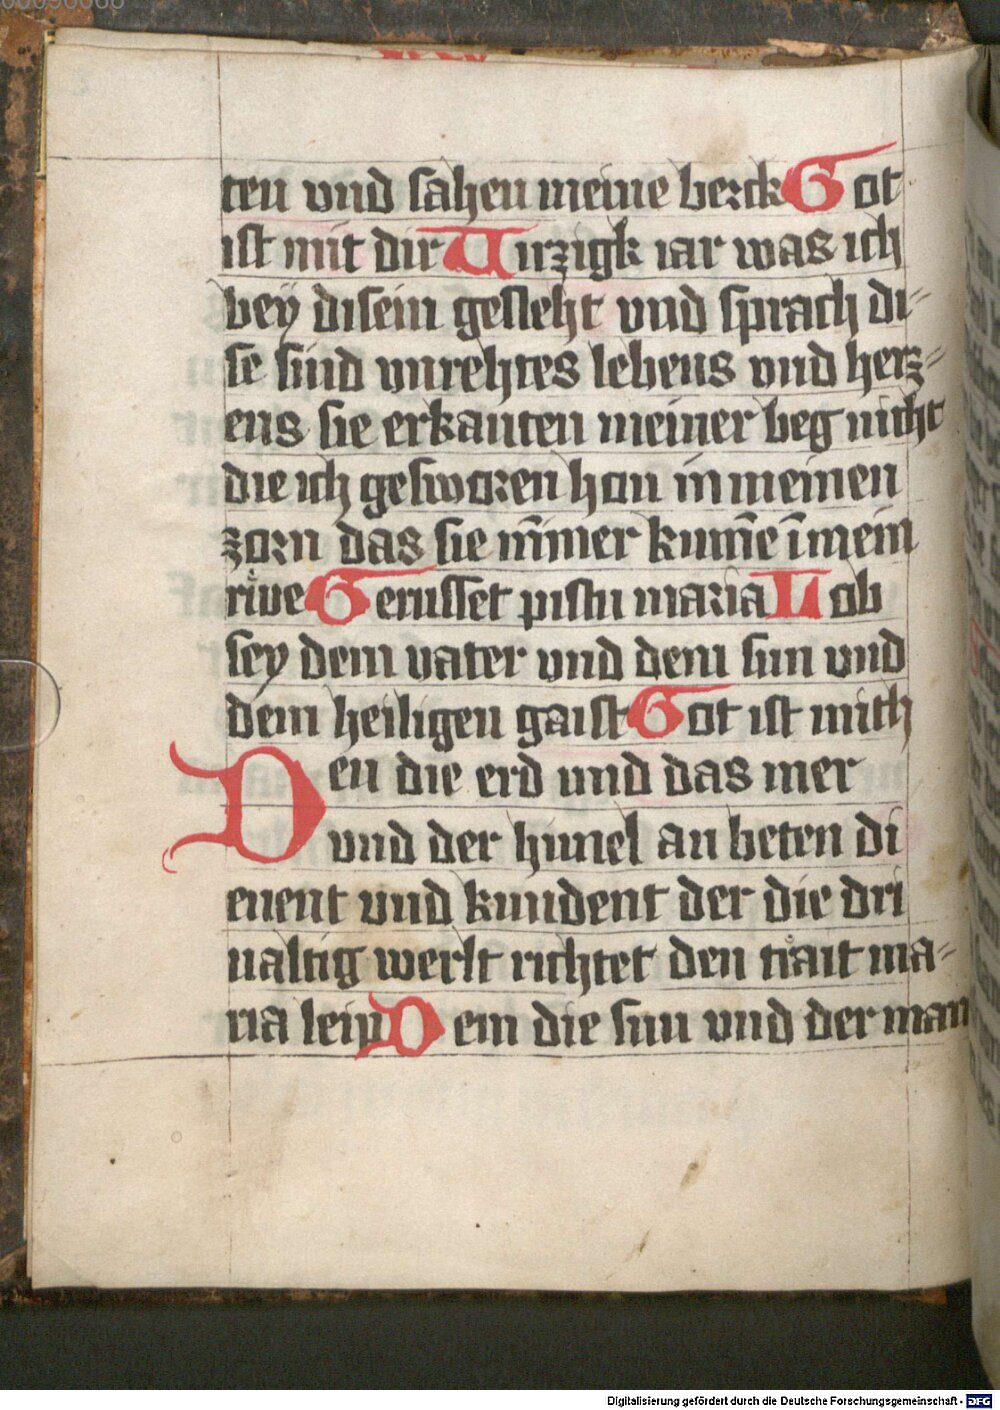 ten vnd sahen meine berckGot
ist mit dir Uirzigk iar was ich
bey disem gesleht vnd sprach di-
se sind vnrehtes lebens vnd herz-
ens sie erkanten meiner beg nicht
die ich gesworen hon in meinen
zorn das sie nīmer kum̄e ī mein
rͦwe Gerusset pistu maria Lob
sey dem vater vnd dem sun vnd
dem heiligen gaist Got ist mich
Den die erd vnd das mer
vnd der himel an beten di
enent vnd kundent der die dri
ualtig werlt richtet den trͣait ma-
ria leip Dem die sun vnd der man
Digitalisierung gefördert durch die Deutsche Forschungsgemeinschaft - DFG